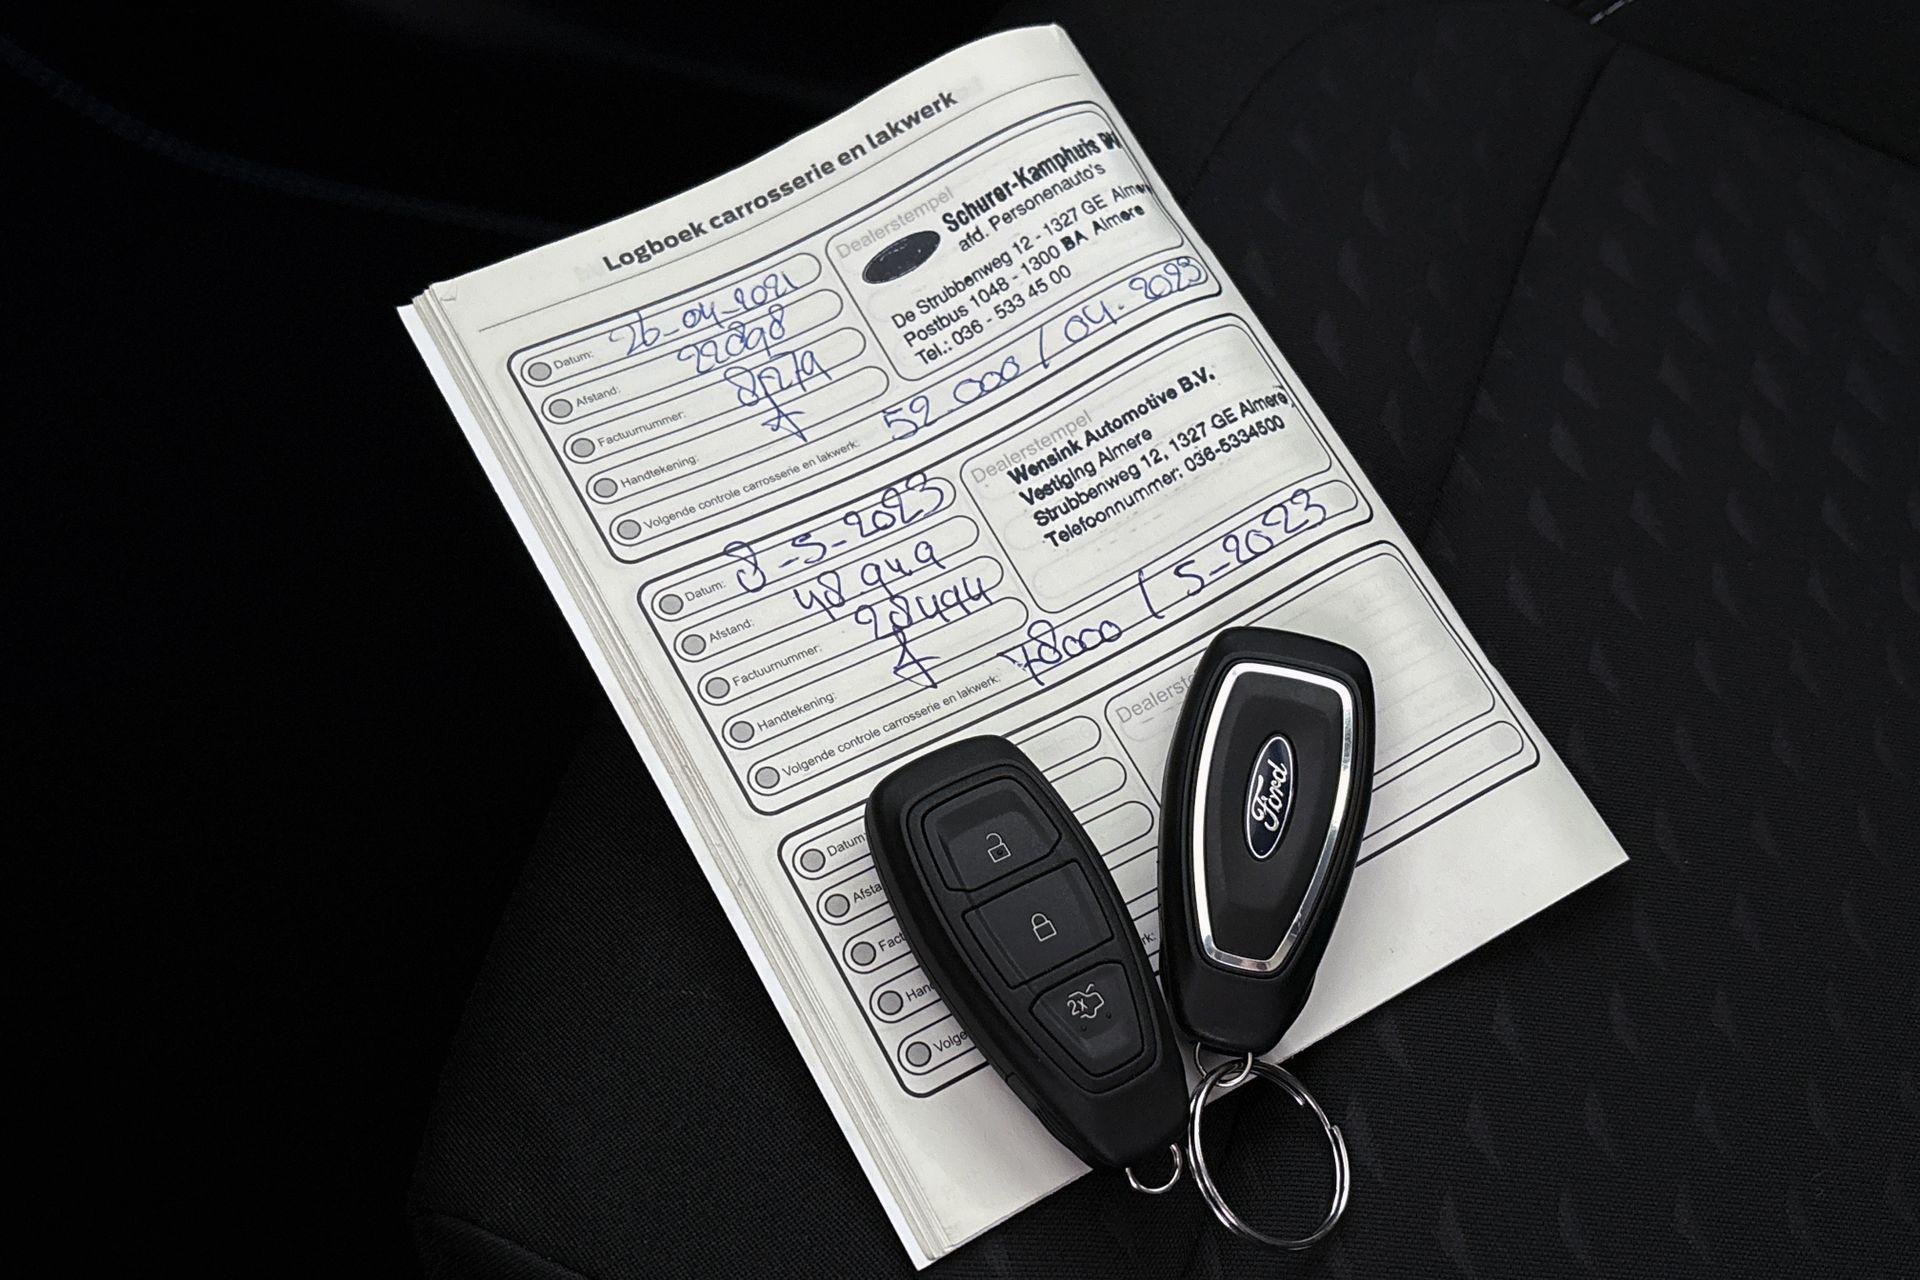 Logboek carrosserie en lakwerk
Datum: 26-04-2021
Afstand: 22898
Factuurnummer:
Handtekening:
Volgende controle carrosserie en lakwerk: 52.000 / 04.2023
Dealerstempel
Schurer-Kamphuis BV
afd. Personenauto's
De Strubbenweg 12 - 1327 GE Almere
Postbus 1048 - 1300 BA Almere
Tel.: 036 - 533 45 00
Datum: 8-5-2023
Afstand: 48.949
Factuurnummer: 28494
Handtekening:
Volgende controle carrosserie en lakwerk: 78000 / 5-2023
Dealerstempel
Wensink Automotive B.V.
Vestiging Almere
Strubbenweg 12, 1327 GE Almere
Telefoonnummer: 036-5334500
Datum:
Afsta
Fact
Han
Volge
Dealerste
rk:
2x
Ford